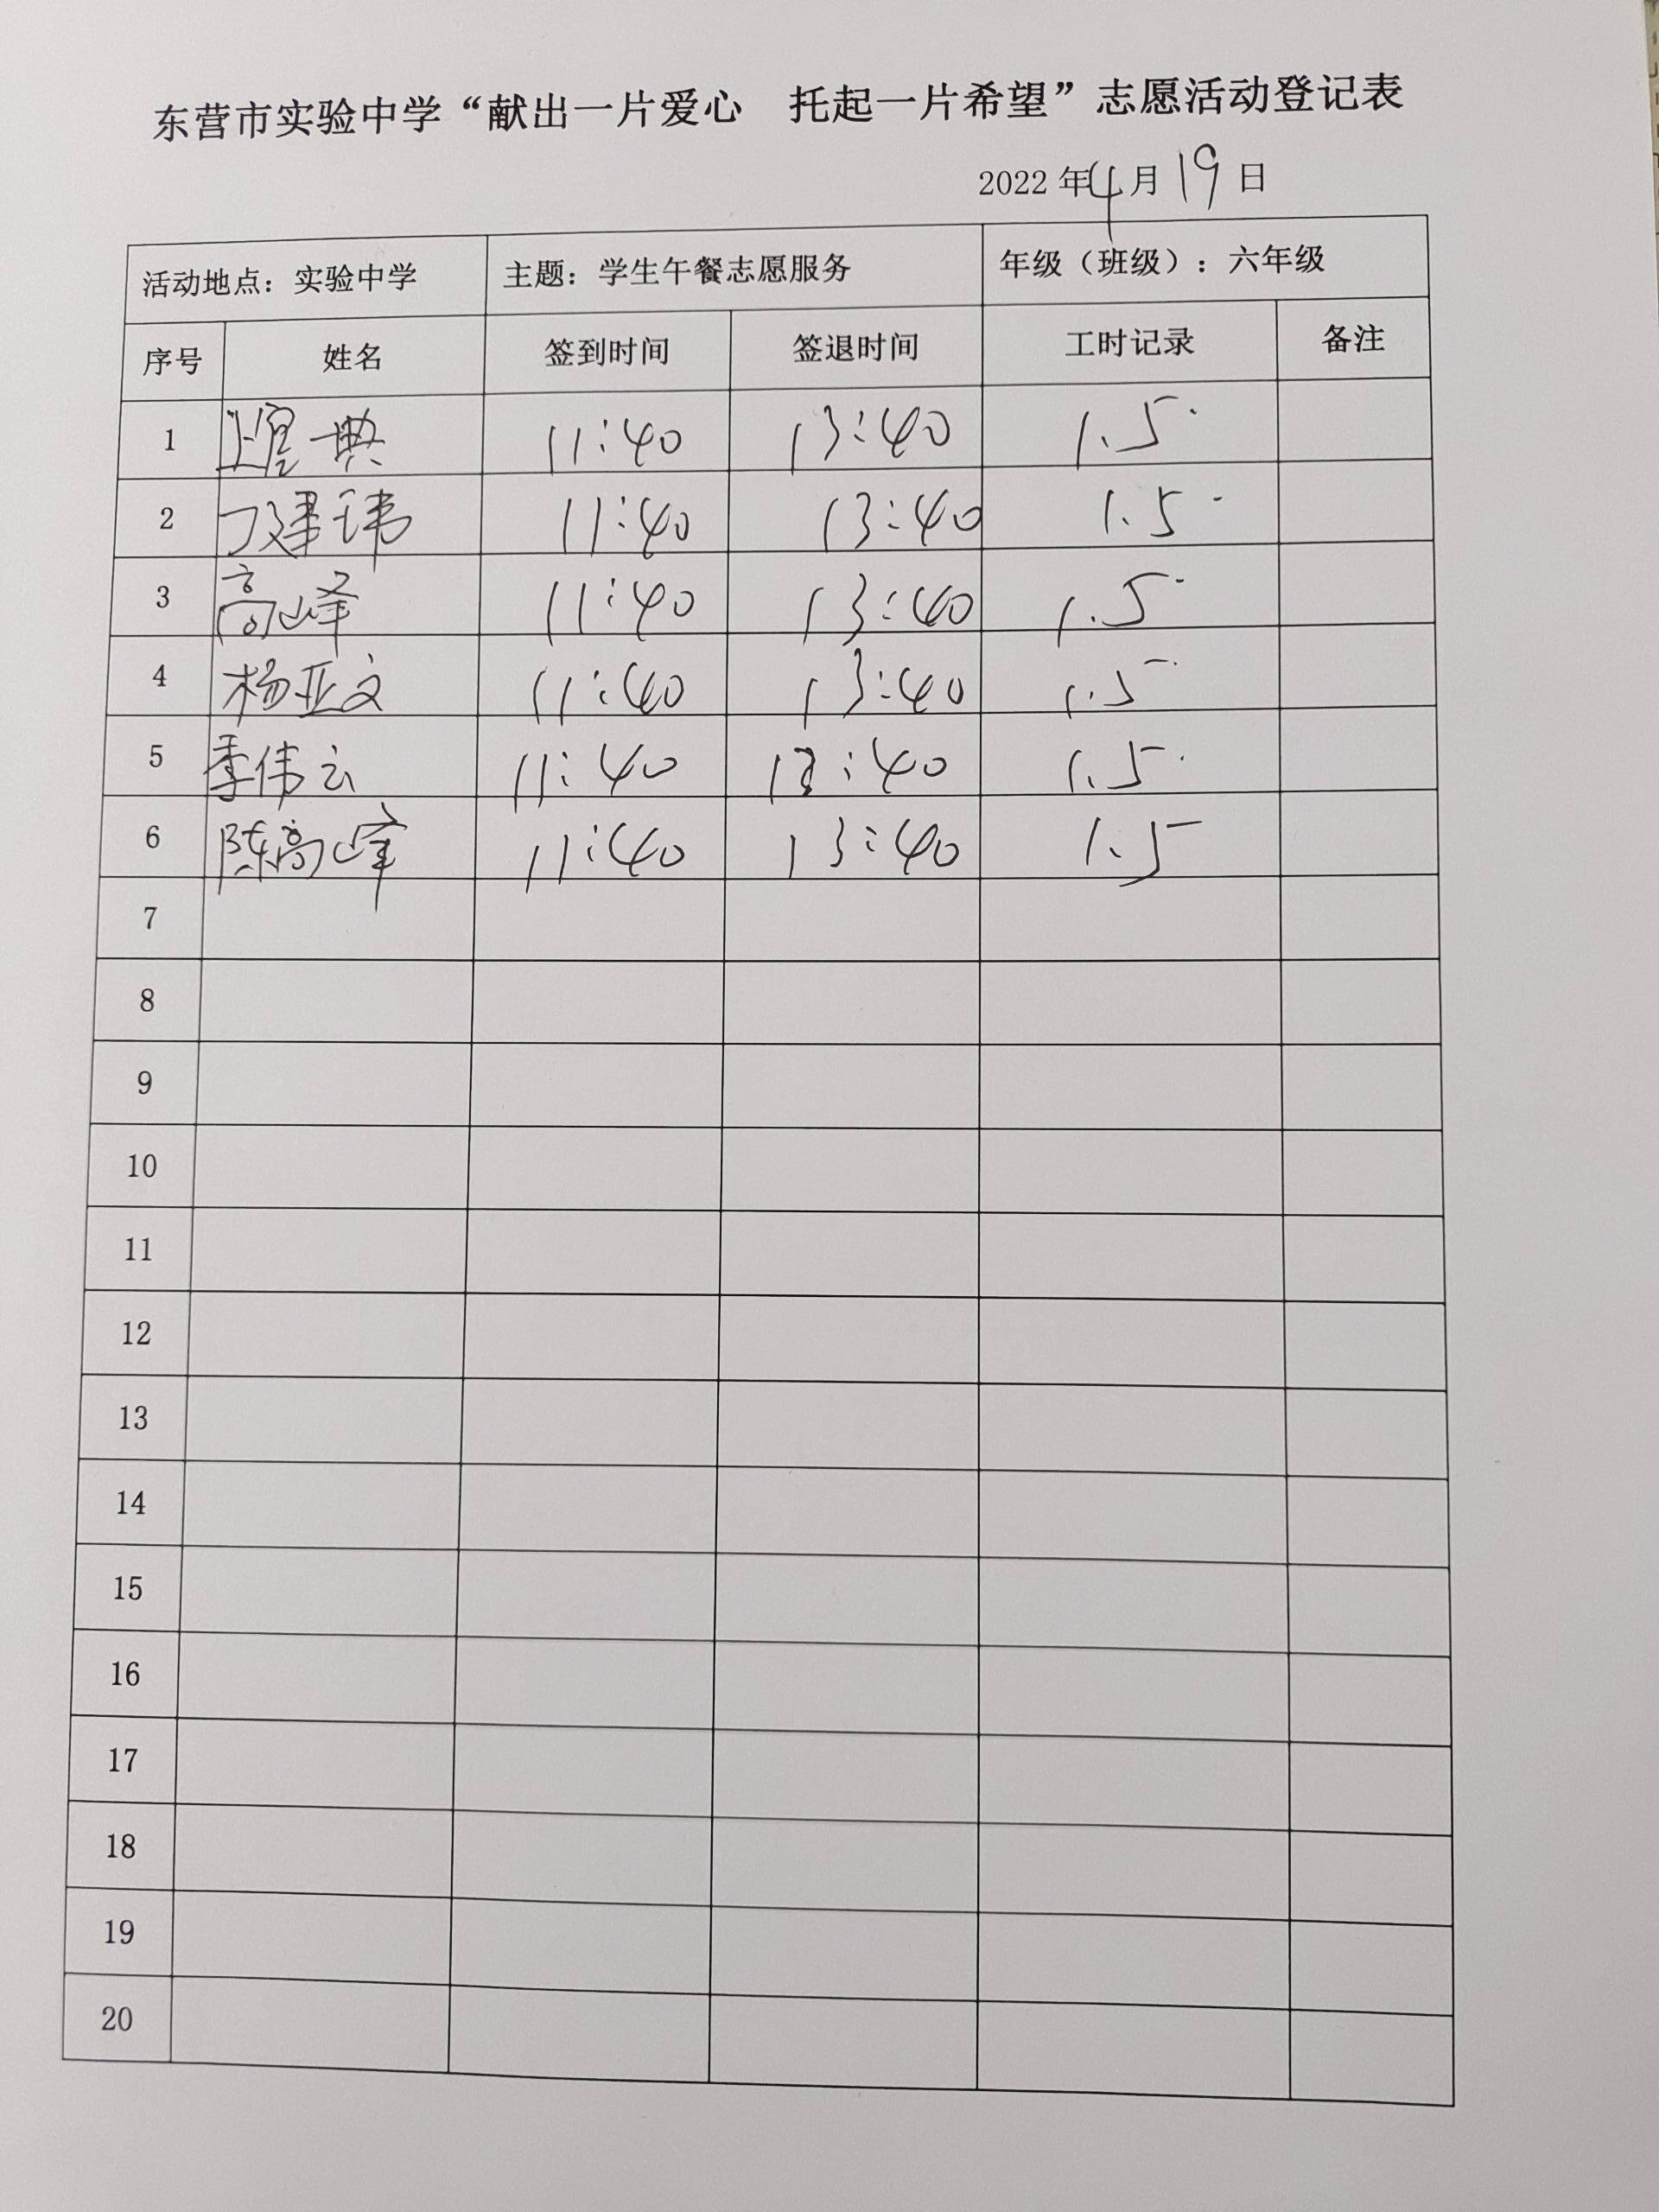 东营市实验中学“献出一片爱心 托起一片希望”志愿活动登记表
2022年4月19日
活动地点：实验中学 主题：学生午餐志愿服务 年级（班级）：六年级
序号 姓名 签到时间 签退时间 工时记录 备注
1 11:40 13:40 1.5
2 丁建玮 11:40 13:40 1.5
3 高峰 11:40 13:40 1.5
4 杨亚文 11:40 13:40 1.5
5 季伟云 11:40 13:40 1.5
6 陈高峰 11:40 13:40 1.5
7
8
9
10
11
12
13
14
15
16
17
18
19
20